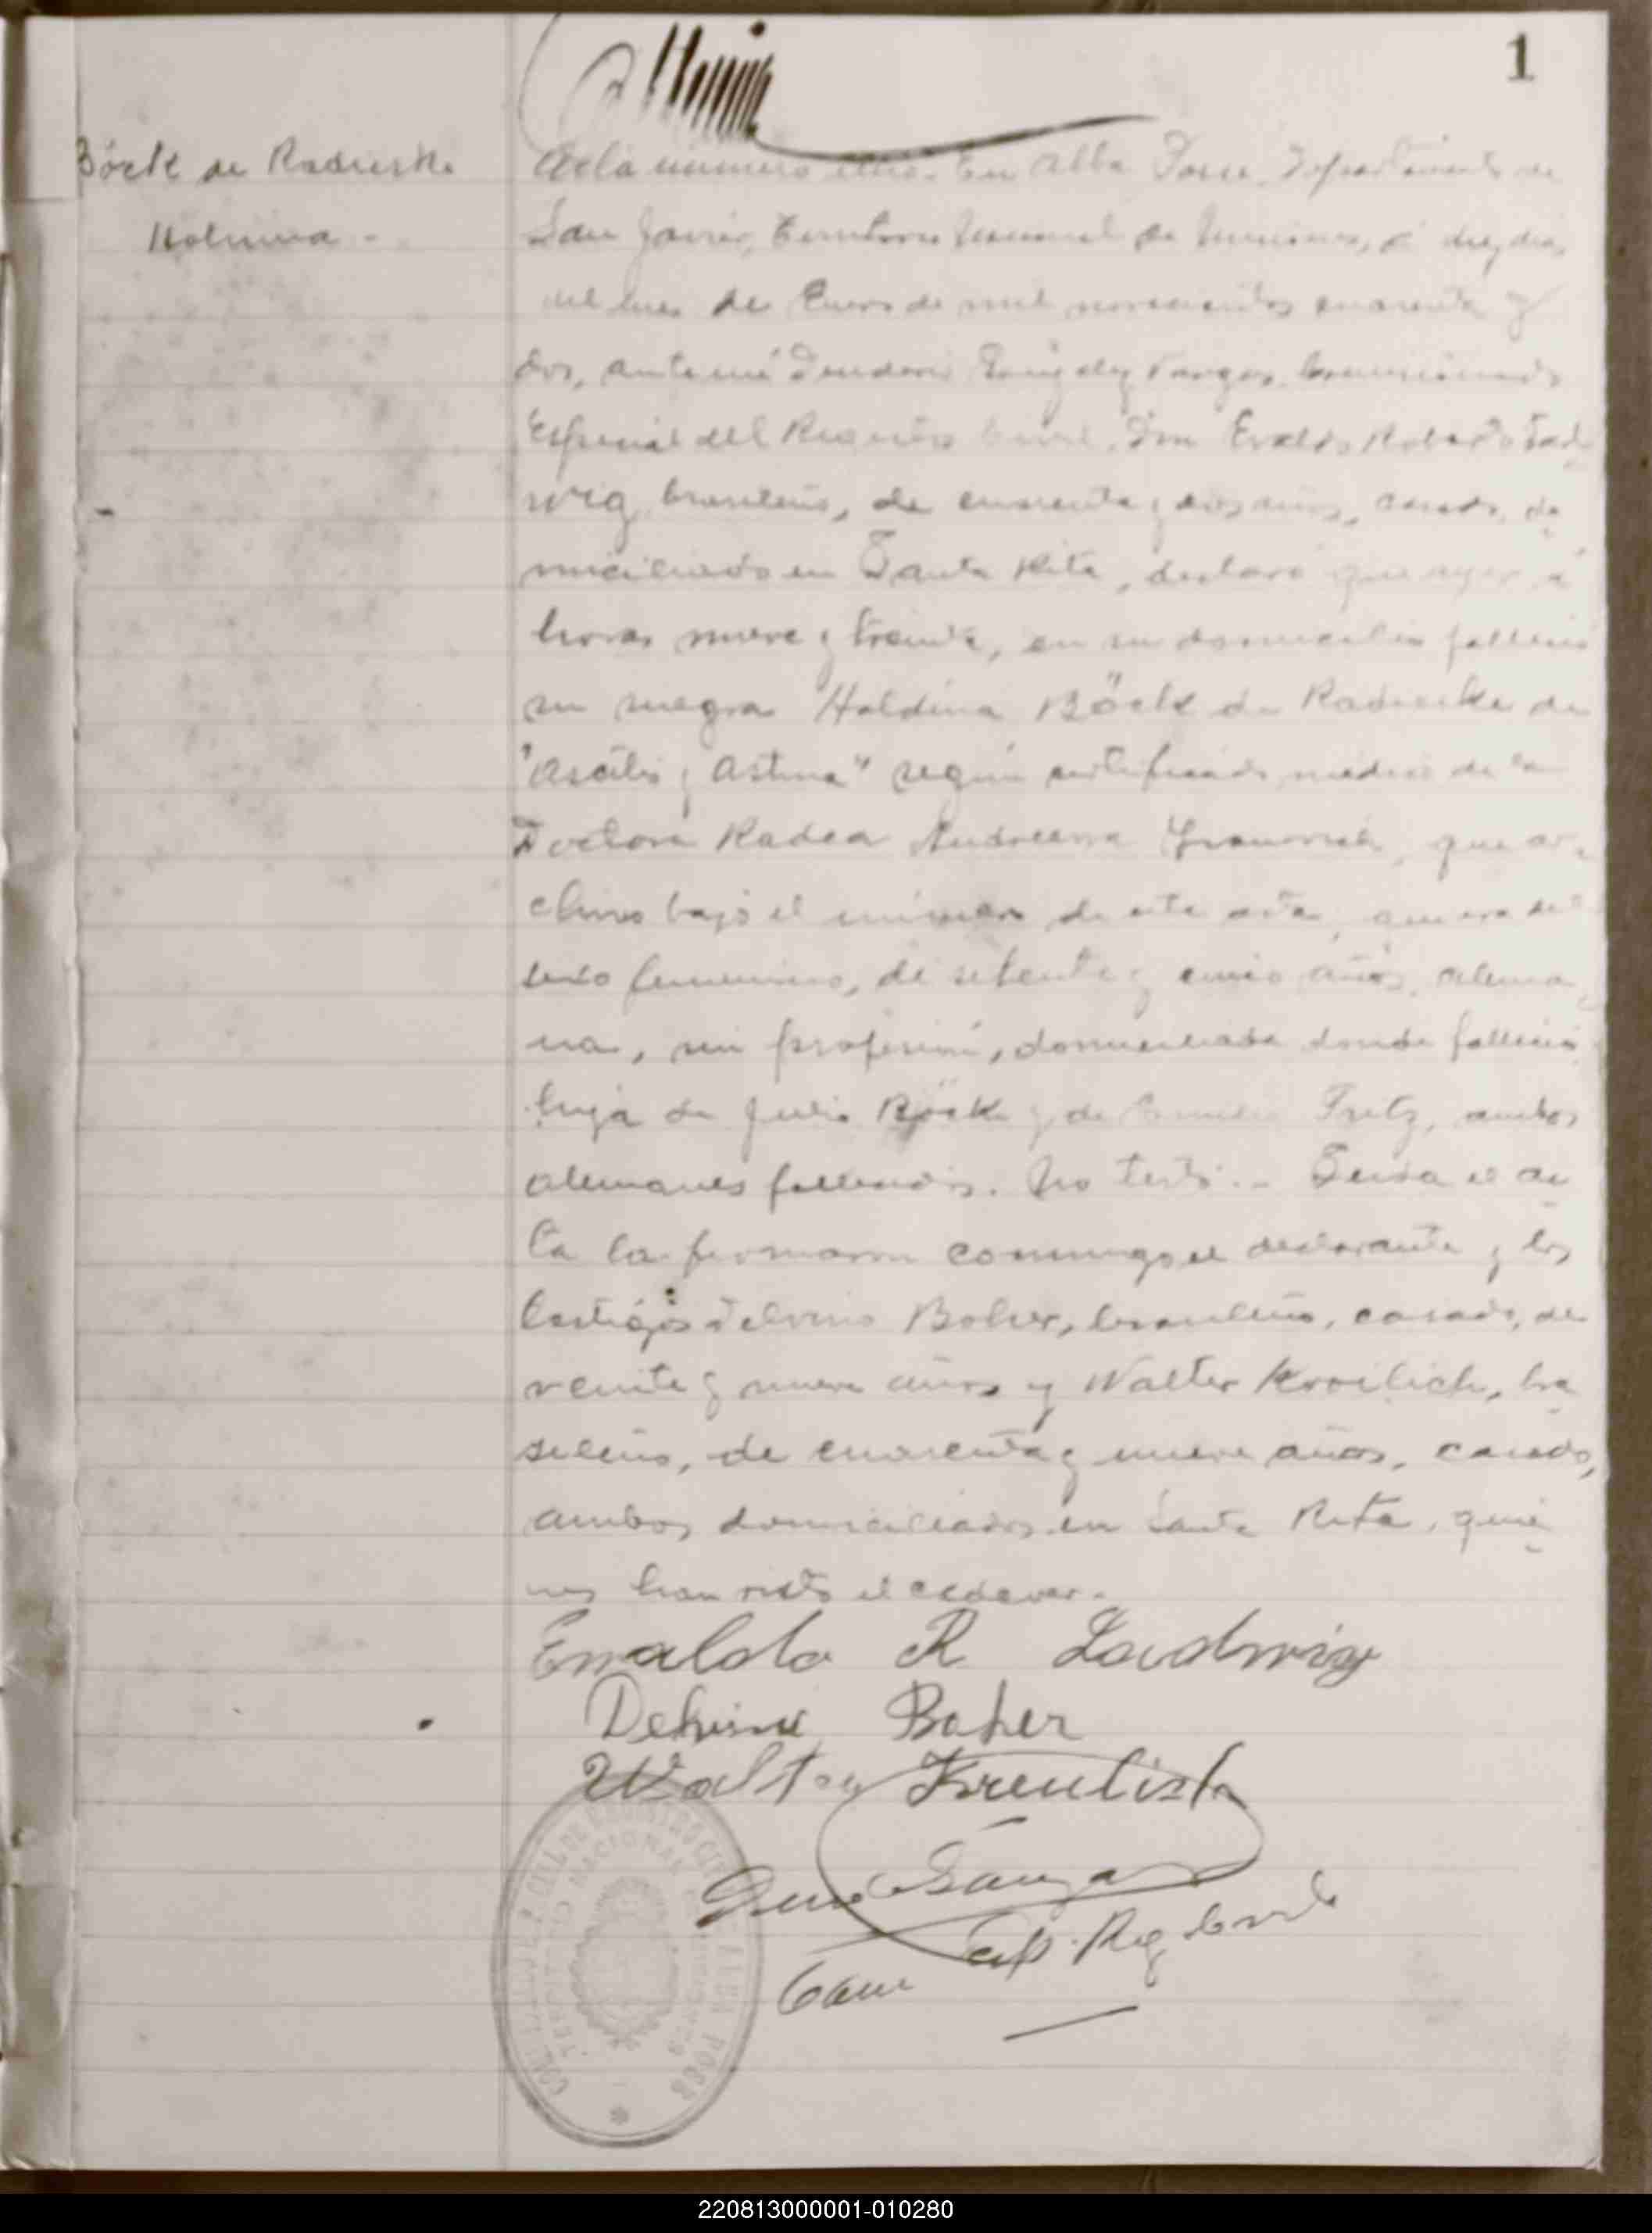 1
Böck de Radieske
Acta número uno. En Alba Posse, Departamento de
San Javier, Territorio Nacional de Misiones, á diez días
del mes de Enero de mil novecientos cuarenta y
dos, ante mí Vargas, Comisionado
Especial del Registro Civil, Don Evaldo Roberto Lad
wig, brasileño, de cuarenta y dos años, casado, do
miciliado en Santa Rita, declaró que ayer á
horas nueve y treinta, en su domicilio falleció
su suegra Holdina Böck de Radieske de
"Ascitis y Astma" según certificado médico de la
Doctora Radea que ar
chivo bajo el número de esta acta, que era del
sexo femenino, de setenta y cinco años, alema
na, sin profesión, domiciliada donde falleció
hija de Julio Böck y de Fritz, ambos
alemanes fallecidos. No testó.- Leida el ac
ta la firmaron conmigo el declarante y los
testigos Delvino Boher, brasileño, casado, de
veinte y nueve años y Walter bra
sileño, de cuarenta y nueve años, casado,
ambos domiciliados en Santa Rita, quie
nes han visto el cadaver.-
Evaldo R Ladwig
Boher
Walter
Reg Civil
220813000001-010280